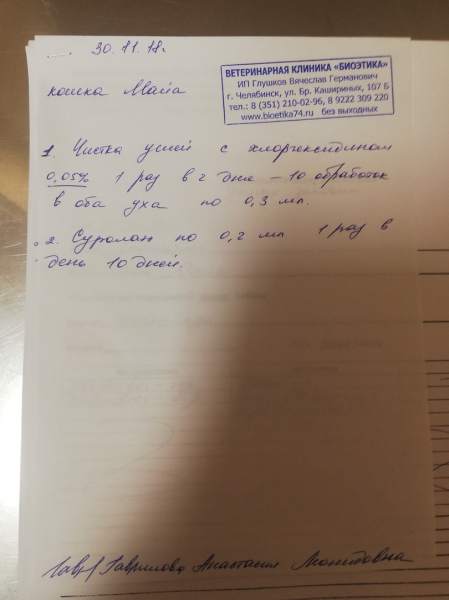 30.11.18г.
ВЕТЕРИНАРНАЯ КЛИНИКА «БИОЭТИКА»
ИП Глушков Вячеслав Германович
г. Челябинск, ул. Бр. Кашириных, 107 Б
тел.: 8 (351) 210-02-96, 8 9222 309 220
www.bioetika74.ru без выходных
кошка Майа
1. Чистка ушей с хлоргексидином
0,05% 1 раз в 2 дня – 10 обработок
в оба уха по 0,3 мл.
2. Суролан по 0,2 мл 1 раз в
день 10 дней.
Гаврилова Анастасия Леонидовна